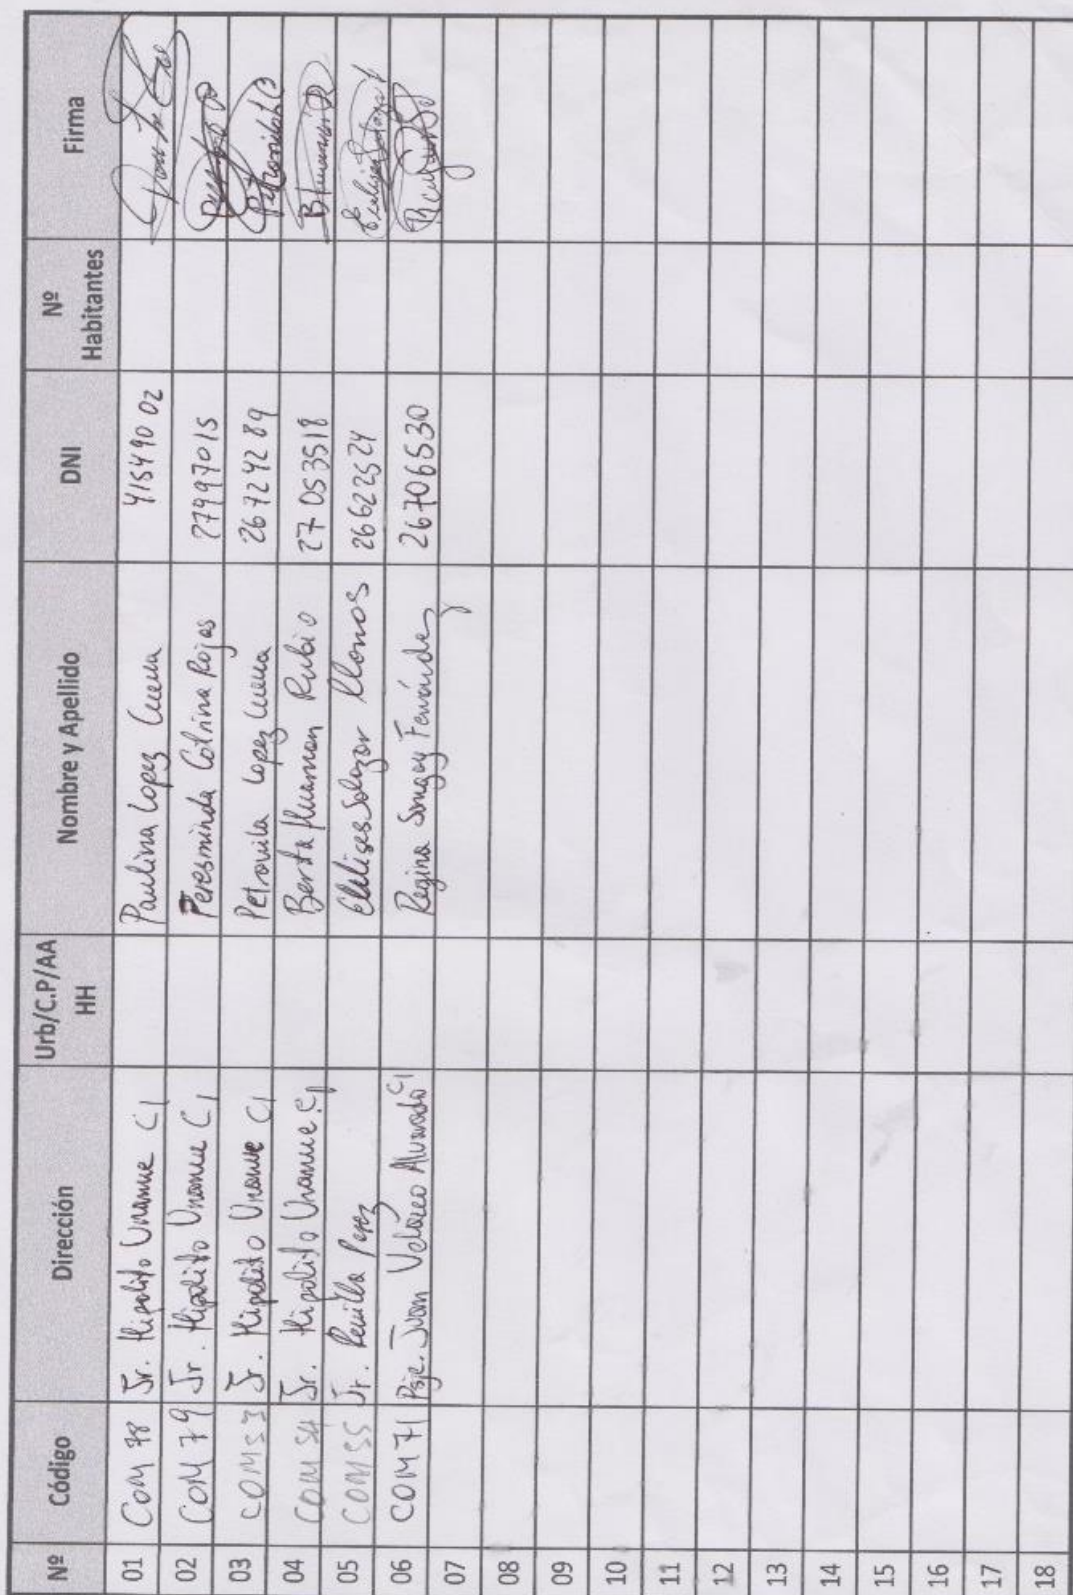 Nº Código Dirección Urb/C.P/AA HH Nombre y Apellido DNI Nº Habitantes Firma
01 COM 78 Jr. Hipolito Unanue C1 Paulina Lopez Cueva 41549002
02 COM 79 Jr. Hipolito Unanue C1 Peresminda Cotrina Rojas 27997015
03 COM 53 Jr. Hipolito Unanue C1 Petronila Lopez Cueva 26724289
04 COM 54 Jr. Hipolito Unanue C1 Berta Huaman Rubio 27053518
05 COM 55 Jr. Revilla Perez Salazar Llanos 26622524
06 COM 71 Psje. Juan Velasco Alvarado C1 Regina Fernández 26706530
07
08
09
10
11
12
13
14
15
16
17
18